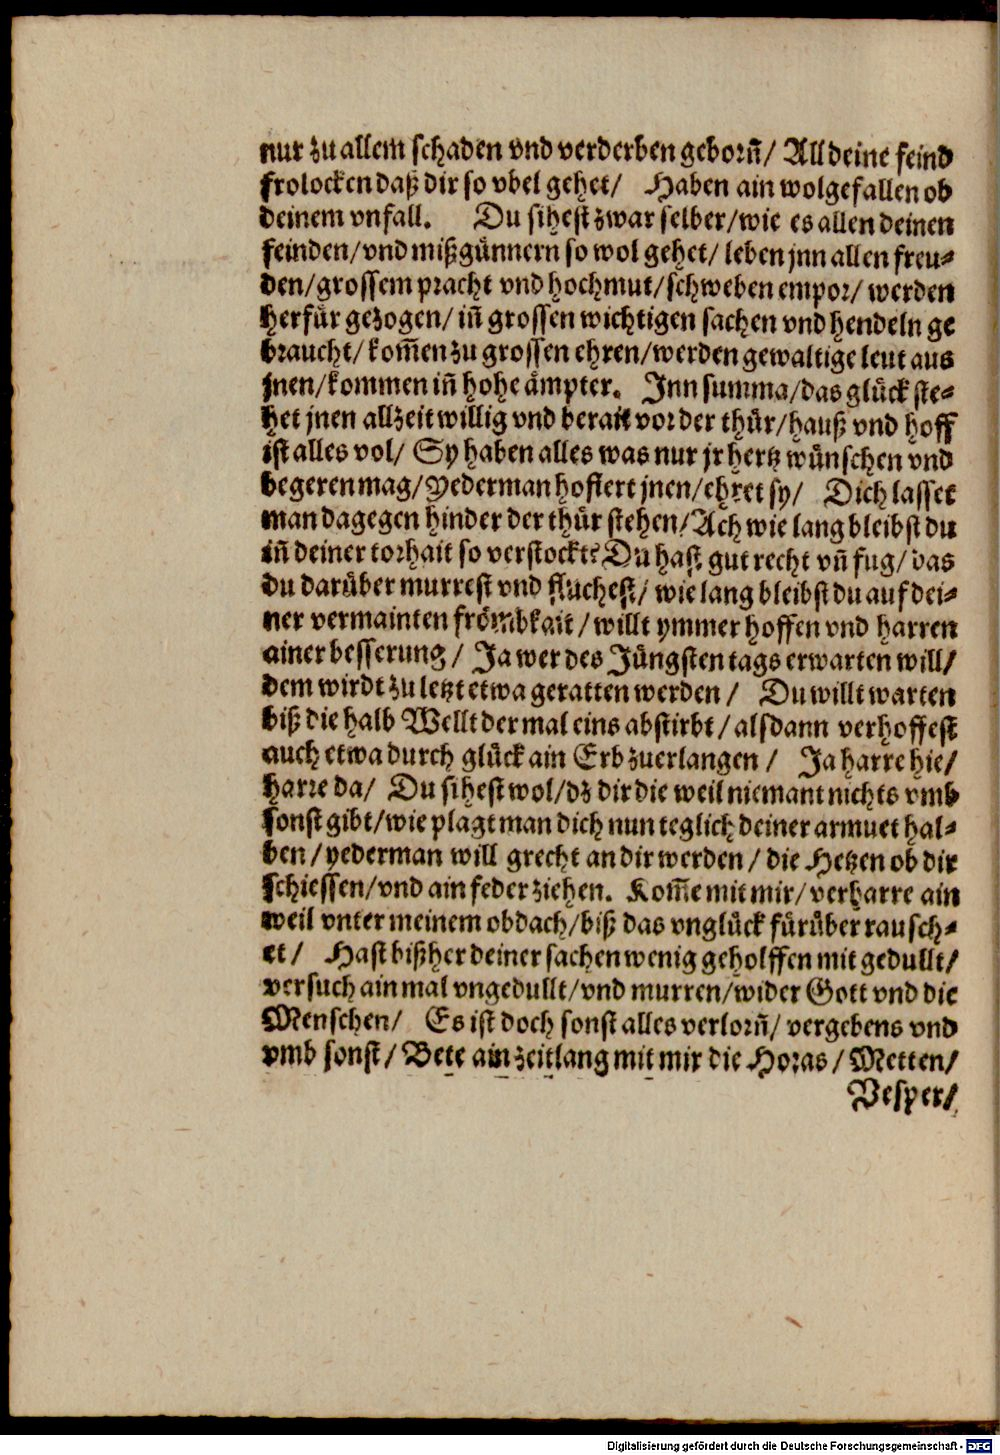 nur zu allem schaden vnd verderben geborn̄/ All deine feind
frolocken daß dir so vbel gehet/ Haben ain wolgefallen ob
deinem vnfall. Du sihest zwar selber/wie es allen deinen
feinden/vnd mißgünnern so wol gehet/ leben jnn allen freu-
den/grossem pracht vnd hochmut/schweben empor/ werden
herfür gezogen/ in̄ grossen wichtigen sachen vnd hendeln ge
braucht/ kom̄en zu grossen ehren/werden gewaltige leut aus
jnen/kommen in̄ hohe ämpter. Inn summa/das glück ste-
het jnen allzeit willig vnd berait vor der thür/hauß vnd hoff
ist alles vol/ Sy haben alles was nur jr hertz wünschen vnd
begeren mag/yederman hofiert jnen/ehret sy/ Dich lasset
man dagegen hinder der thür stehen/Ach wie lang bleibst du
in̄ deiner torhait so verstockt? Du hast gut recht vn̄ fug/das
du darüber murrest vnd fluchest/ wie lang bleibst du auf dei-
ner vermainten frömbkait/willt ymmer hoffen vnd harren
ainer besserung/ Ja wer des Jüngsten tags erwarten will/
dem wirdt zu letzt etwa geratten werden/ Du willt warten
biß die halb Wellt der mal eins abstirbt/alsdann verhoffest
auch etwa durch glück ain Erb zuerlangen/ Ja harre hie/
harre da/ Du sihest wol/dz dir die weil niemant nichts vmb
sonst gibt/wie plagt man dich nun teglich deiner armuet hal-
ben/yederman will grecht an dir werden/die Hetzen ob dir
schiessen/vnd ain feder ziehen. Kom̄e mit mir/verharre ain
weil vnter meinem obdach/biß das vnglück fürüber rausch-
et/ Hast bißher deiner sachen wenig geholffen mit gedullt/
versuch ain mal vngedullt/vnd murren/wider Gott vnd die
Menschen/ Es ist doch sonst alles verlorn̄/ vergebens vnd
vmb sonst/Bete ain zeitlang mit mir die Horas/Metten/
Vesper/
Digitalisierung gefördert durch die Deutsche Forschungsgemeinschaft - DFG